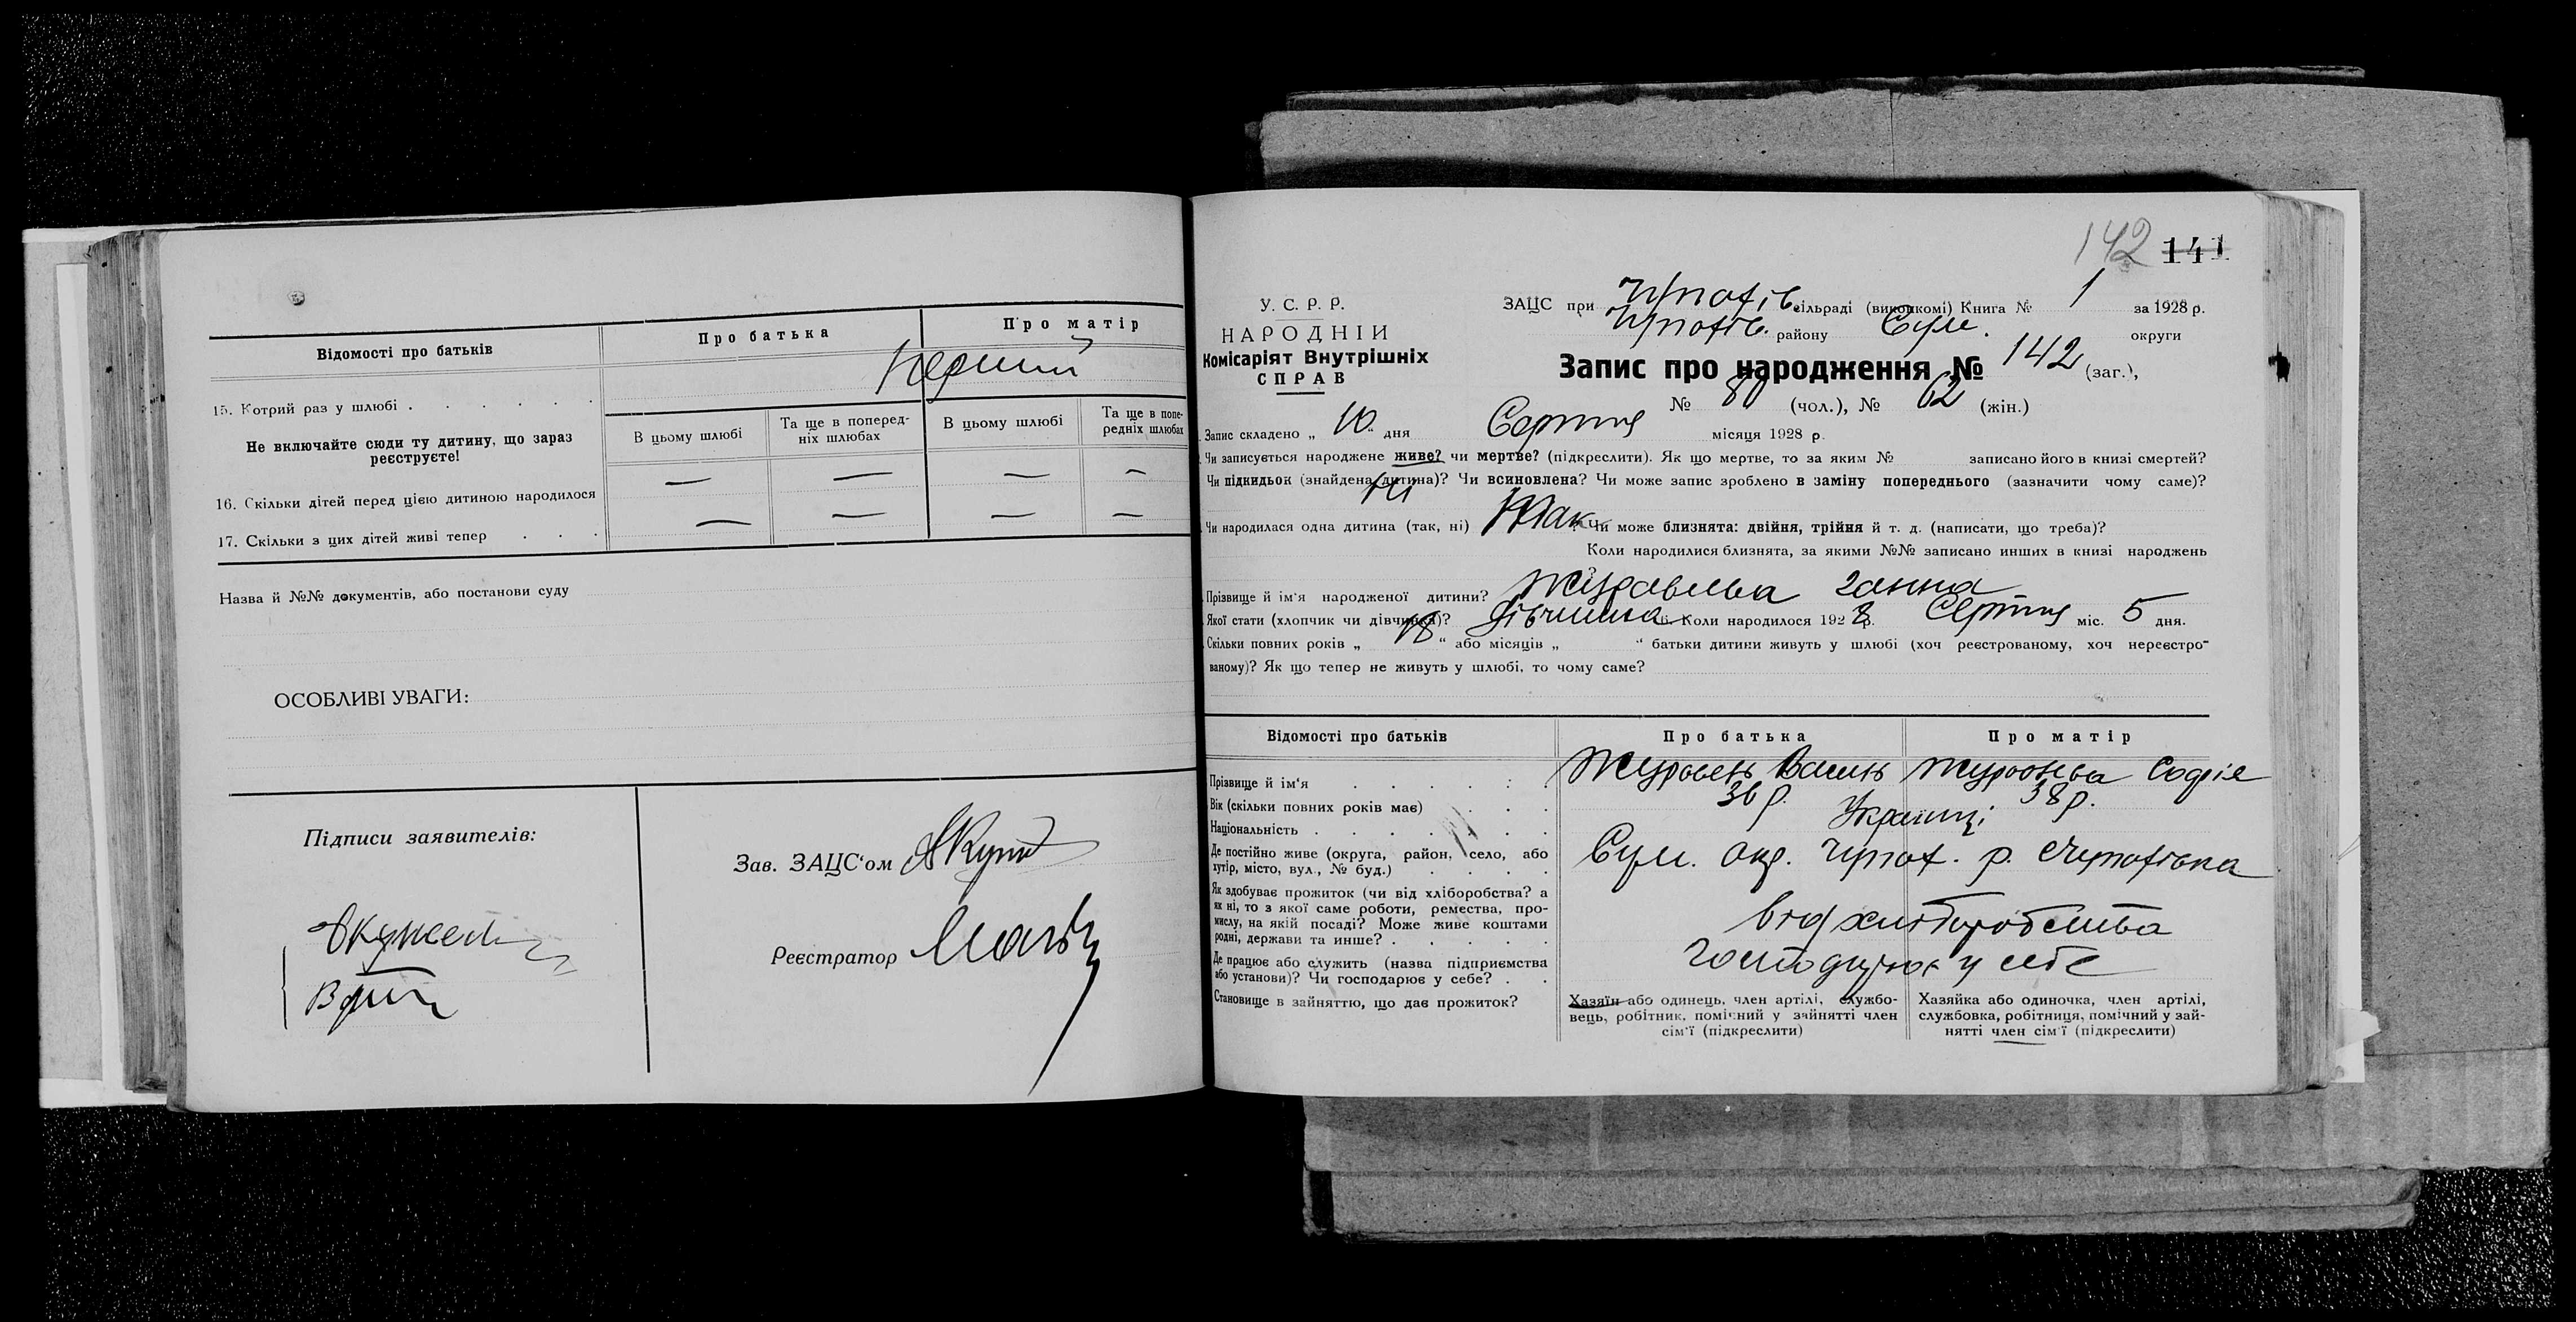 Відомості про батьків
Про батька
Про матір
15. Котрий раз у шлюбі . . . . . .
Перший
Не включайте сюди ту дитину, що зараз
реєструєте!
В цьому шлюбі
Та ще в поперед-
ніх шлюбах
В цьому шлюбі
Та ще в попе-
редніх шлюбах
16. Скільки дітей перед цією дитиною народилося — — — —
17. Скільки з цих дітей живі тепер . . . — — — —
Назва й №№ документів, або постанови суду
ОСОБЛИВІ УВАГИ:
Підписи заявителів:
Зав. ЗАЦС'ом
Реєстратор
142 141
У. С. Р. Р.
НАРОДНІЙ
Комісаріят Внутрішніх
СПРАВ
ЗАЦС при сільраді (виконкомі) Книга № 1 за 1928 р.
району Сум. округи
Запис про народження № 142 (заг.),
№ 80 (чол.), № 62 (жін.)
Запис складено „ 10 “ дня Серпня місяця 1928 р.
Чи записується народжене живе? чи мертве? (підкреслити). Як що мертве, то за яким № записано його в книзі смертей?
Чи підкидьок (знайдена дитина)? Чи всиновлена? Чи може запис зроблено в заміну попереднього (зазначити чому саме)?
Ні
Чи народилася одна дитина (так, ні) Так ? Чи може близнята: двійня, трійня й т. д. (написати, що треба)?
Коли народилися близнята, за якими №№ записано инших в книзі народжень
Прізвище й ім'я народженої дитини? Журавльва Ганна
Якої стати (хлопчик чи дівчинка)? Дівчинка Коли народилося 1928 р. Серпня міс. 5 дня.
Скільки повних років „ 18 “ або місяців „ “ батьки дитини живуть у шлюбі (хоч реєстрованому, хоч нереєстро-
ваному)? Як що тепер не живуть у шлюбі, то чому саме?
Відомості про батьків
Про батька
Про матір
Прізвище й ім'я . . . . . .
Журавель Василь
Журавльва Софія
Вік (скільки повних років має) . . .
36 р.
38 р.
Національність . . . . . . .
Українці
Де постійно живе (округа, район, село, або
хутір, місто, вул., № буд.) . . . .
Сум. окр. р.
Як здобуває прожиток (чи від хліборобства? а
як ні, то з якої саме роботи, ремества, про-
мислу, на якій посаді? Може живе коштами
родні, держави та инше? . . . . .
від хліборобства
Де працює або служить (назва підприємства
або установи)? Чи господарює у себе? . .
господарює у себе
Становище в зайняттю, що дає прожиток?
Хазяїн або одинець, член артілі, службо-
вець, робітник, помічний у зайнятті член
сім'ї (підкреслити)
Хазяйка або одиночка, член артілі,
службовка, робітниця, помічний у зай-
нятті член сім'ї (підкреслити)